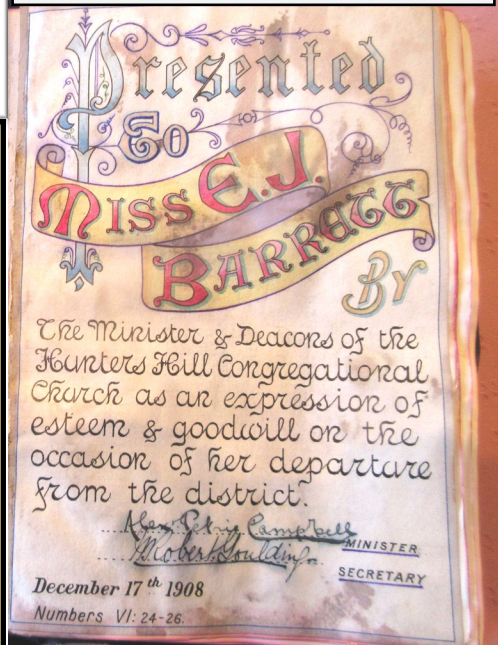 Presented
To
MISS E.J.
BARRETT
BY
The Minister & Deacons of the
Hunters Hill Congregational
Church as an expression of
esteem & goodwill on the
occasion of her departure
from the district.
Alex. Campbell
MINISTER
Robert Goulding
SECRETARY
December 17th 1908
Numbers VI: 24-26.